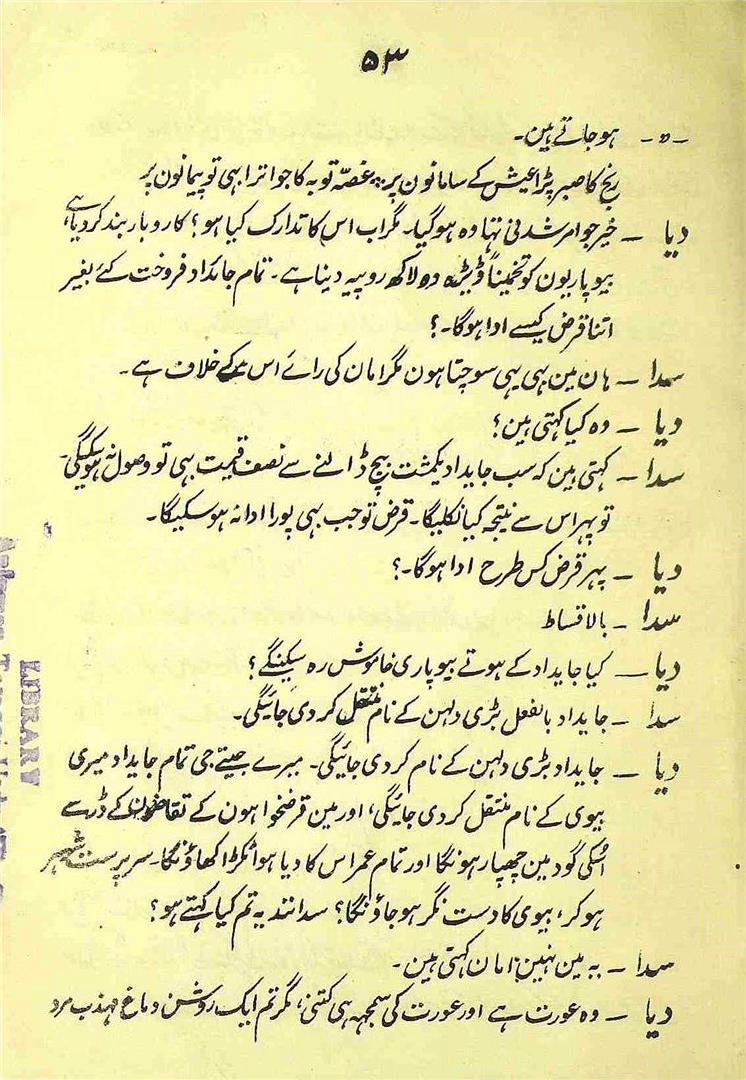 ۵۳
-ہ- ہو جاتے ہین۔
رنج کا صبر پڑا عیش کے سامانون پر ؞ غصّہ توبہ کا جو اترا بہی تو پیمانون پر
دیا — خیر جو امر شدنی تہا وہ ہو گیا۔ مگر اب اس کا تدارک کیا ہو؟ کاروبار بند کر دیا ہے،
بیوپاریون کو تخمیناً ڈیڑہ دو لاکھ روپیہ دینا ہے۔ تمام جائداد فروخت کئے بغیر
اتنا قرض کیسے ادا ہوگا۔؟
سدا — ہان مین بہی یہی سوچتا ہون مگر امان کی رائے اس کے خلاف ہے۔
دیا — وہ کیا کہتی ہین؟
سدا — کہتی ہین کہ سب جایداد یکمشت بیچ ڈالنے سے نصف قیمت بہی تو وصول نہ ہو سکیگی۔
تو پہر اس سے نتیجہ کیا نکلیگا۔ قرض تو جب بہی پورا ادا نہ ہو سکیگا۔
دیا — پہر قرض کس طرح ادا ہوگا۔؟
سدا — بالاقساط
دیا — کیا جایداد کے ہوتے بیوپاری خاموش رہ سکینگے؟
سدا — جایداد بالفعل بڑی دلہن کے نام منتقل کر دی جائیگی۔
دیا — جایداد بڑی دلہن کے نام کر دی جائیگی۔ میرے جیتے جی تمام جایداد میری
بیوی کے نام منتقل کر دی جائیگی، اور مین قرضخواہون کے تقاضون کے ڈر سے
اسکی گود مین چھپا رہونگا اور تمام عمر اس کا دیا ہوا ٹکڑا کھاؤنگا۔ سرپرست شہر
ہو کر، بیوی کا دست نگر ہو جاؤنگا؟ سدانند یہ تم کیا کہتے ہو؟
سدا — یہ مین نہین، امان کہتی ہین۔
دیا — وہ عورت ہے اور عورت کی سمجہہ ہی کتنی، مگر تم ایک روشن دماغ مہذب مرد
LIBRARY